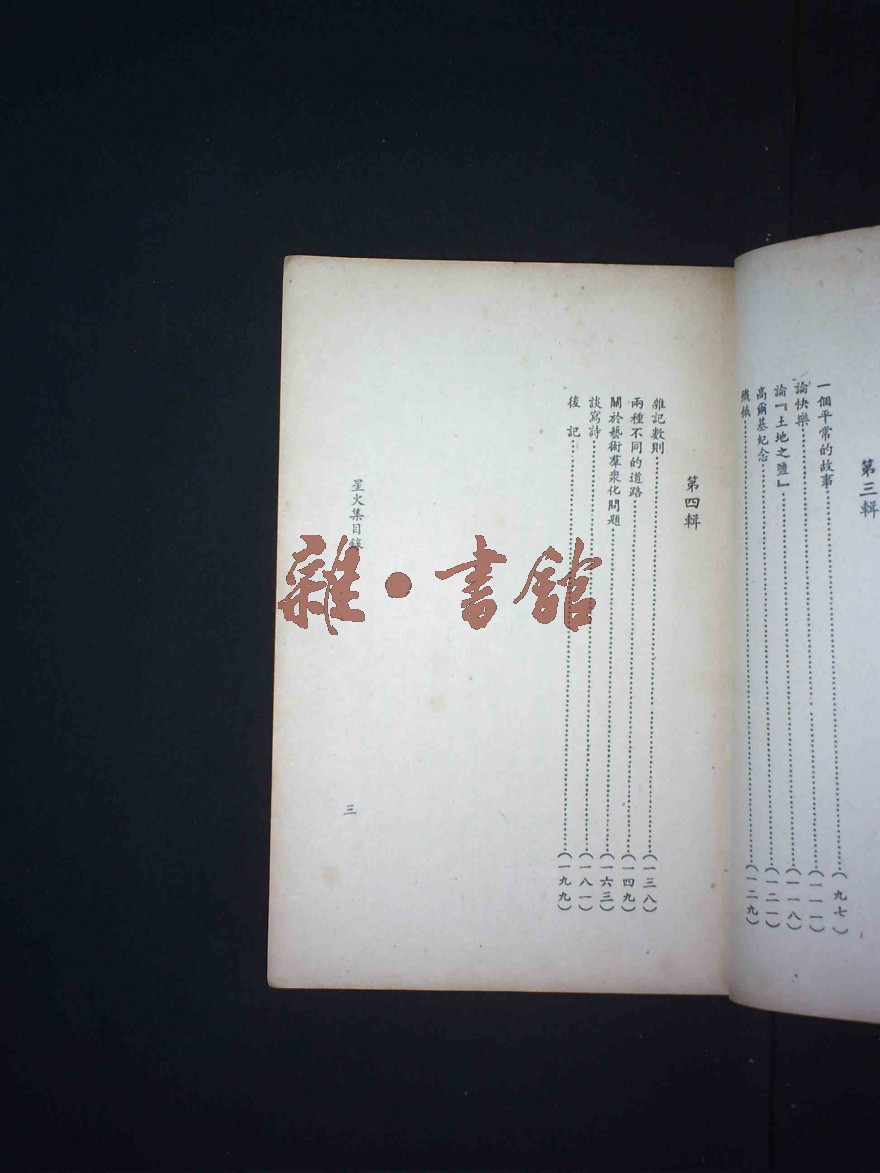 第三輯
一個平常的故事……（九七）
論快樂……（一一一）
論『土地之鹽』……（一一八）
高爾基紀念……（一二一）
饑餓……（一二九）
第四輯
雜記數則……（一三八）
兩種不同的道路……（一四九）
關於藝術羣衆化問題……（一六三）
談寫詩……（一八一）
後記……（一九九）
星火集目錄
三
雜·書館